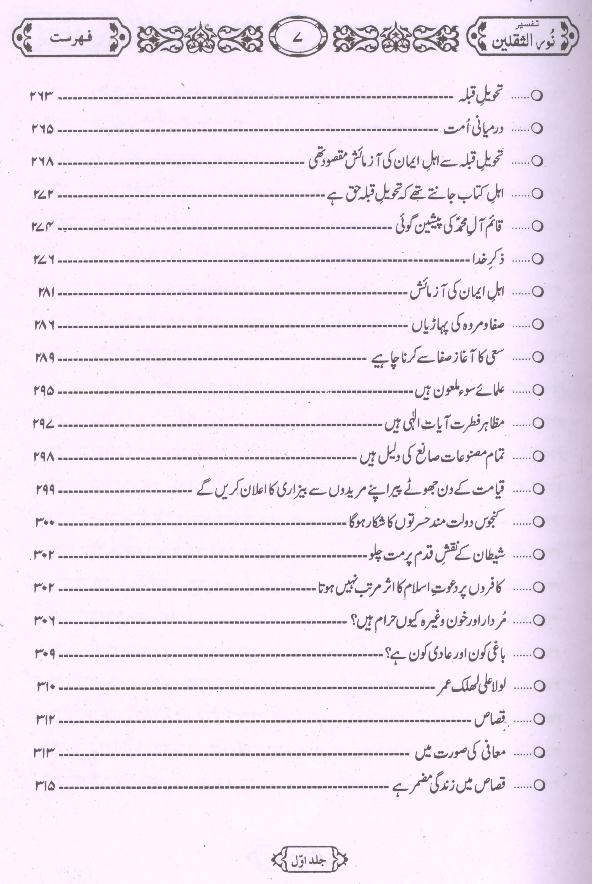 تفسیر نور الثقلین ۷ فہرست
تحویلِ قبلہ ۲۶۳
درمیانی اُمت ۲۶۵
تحویلِ قبلہ سے اہلِ ایمان کی آزمائش مقصود تھی ۲۶۸
اہلِ کتاب جانتے تھے کہ تحویلِ قبلہ حق ہے ۲۷۲
قائم آلِ محمدؐ کی پیشین گوئی ۲۷۴
ذکرِ خدا ۲۷۶
اہلِ ایمان کی آزمائش ۲۸۱
صفا و مروہ کی پہاڑیاں ۲۸۶
سعی کا آغاز صفا سے کرنا چاہیے ۲۸۹
علمائے سوء ملعون ہیں ۲۹۵
مظاہر فطرت آیات الٰہی ہیں ۲۹۷
تمام مصنوعات صانع کی دلیل ہیں ۲۹۸
قیامت کے دن جھوٹے پیر اپنے مریدوں سے بیزاری کا اعلان کریں گے ۲۹۹
کنجوس دولت مند حسرتوں کا شکار ہوگا ۳۰۰
شیطان کے نقشِ قدم پر مت چلو ۳۰۲
کافروں پر دعوتِ اسلام کا اثر مرتب نہیں ہوتا ۳۰۲
مُردار اور خون وغیرہ کیوں حرام ہیں؟ ۳۰۶
باغی کون اور عادی کون ہے؟ ۳۰۹
لولا علی لهلک عمر ۳۱۰
قصاص ۳۱۲
معافی کی صورت میں ۳۱۳
قصاص میں زندگی مضمر ہے ۳۱۵
جلد اوّل